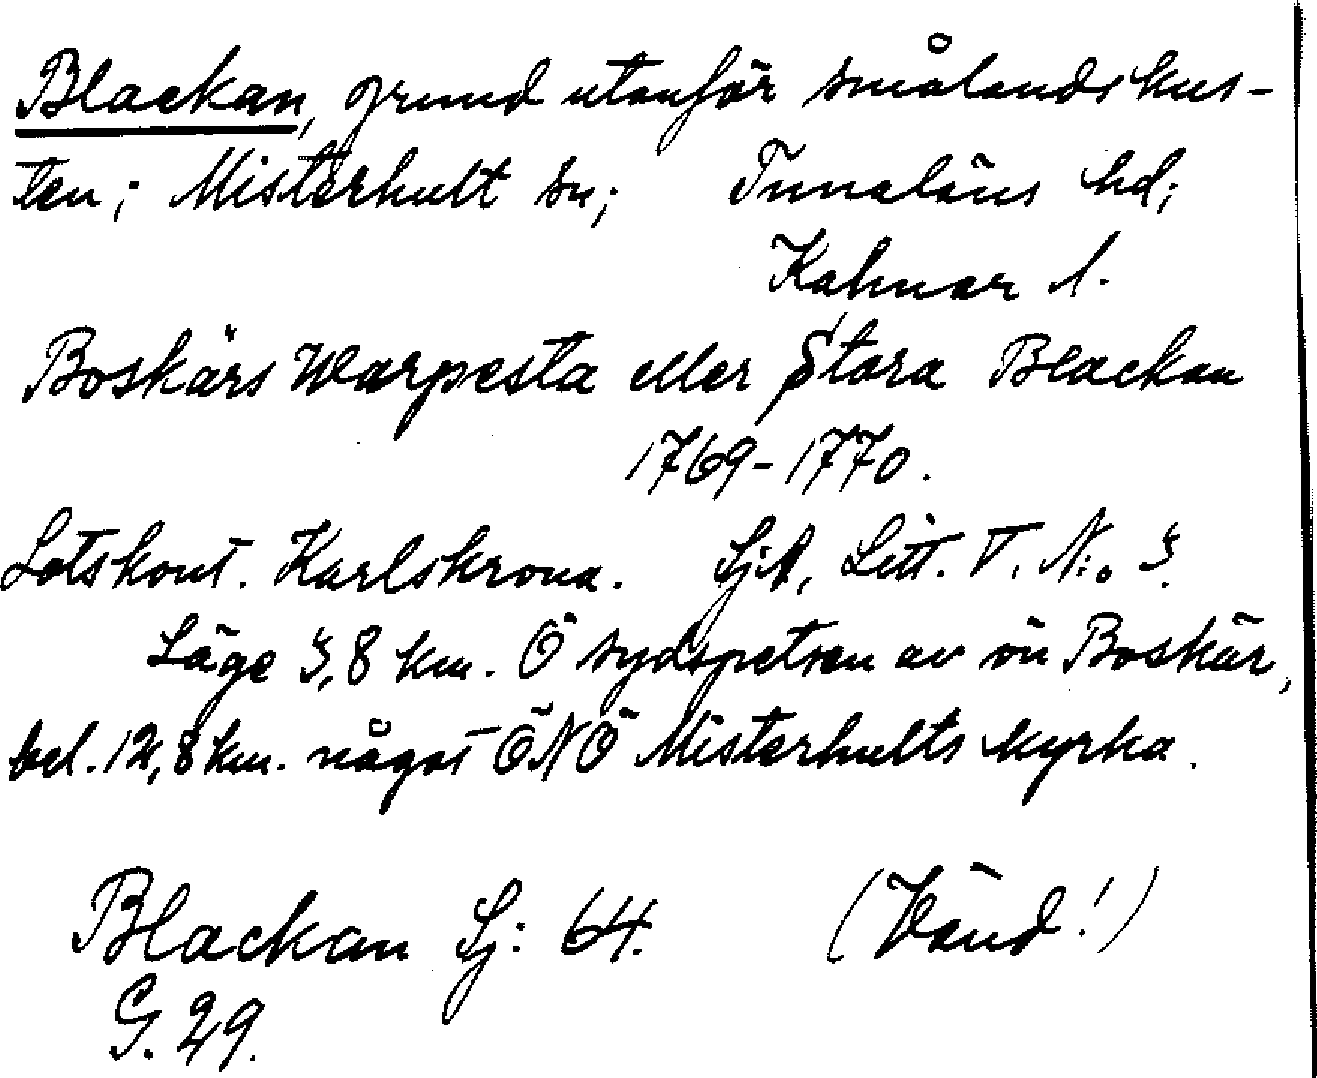 Blackan, grund utanför smålandskus-
ten; Misterhult sn; Tunaläns hd;
Kalmar l.
Boskärs Warpesta eller Stora Blackan
1769-1770.
Lotskont. Karlskrona. SjA, Litt. T. N:o 3.
Läge 3,8 km. Ö sydspetsen av ön Boskär,
bel. 12,8 km. något ÖNÖ Misterhults kyrka.
Blackan Sj: 64. (Vänd!)
G. 29.